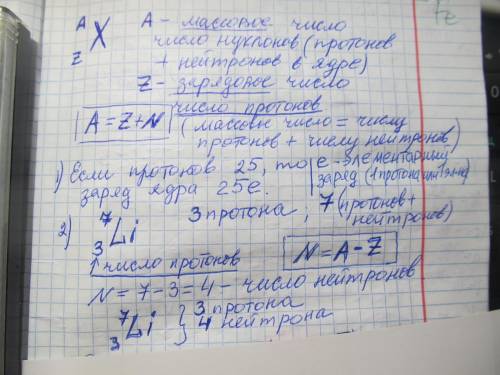 A
X
Z
A - массовое число
число нуклонов (протонов
+ нейтронов в ядре)
Z - зарядовое число
число протонов
A = Z + N
(массовое число = числу
протонов + числу нейтронов)
1) Если протонов 25, то
заряд ядра 25e.
e - элементарный
заряд (1 протона или
2) 7
3 Li
3 протона; 7 (протонов +
нейтронов)
↑ число протонов
N = A - Z
N = 7 - 3 = 4 - число нейтронов
7
3 Li } 3 протона
4 нейтрона